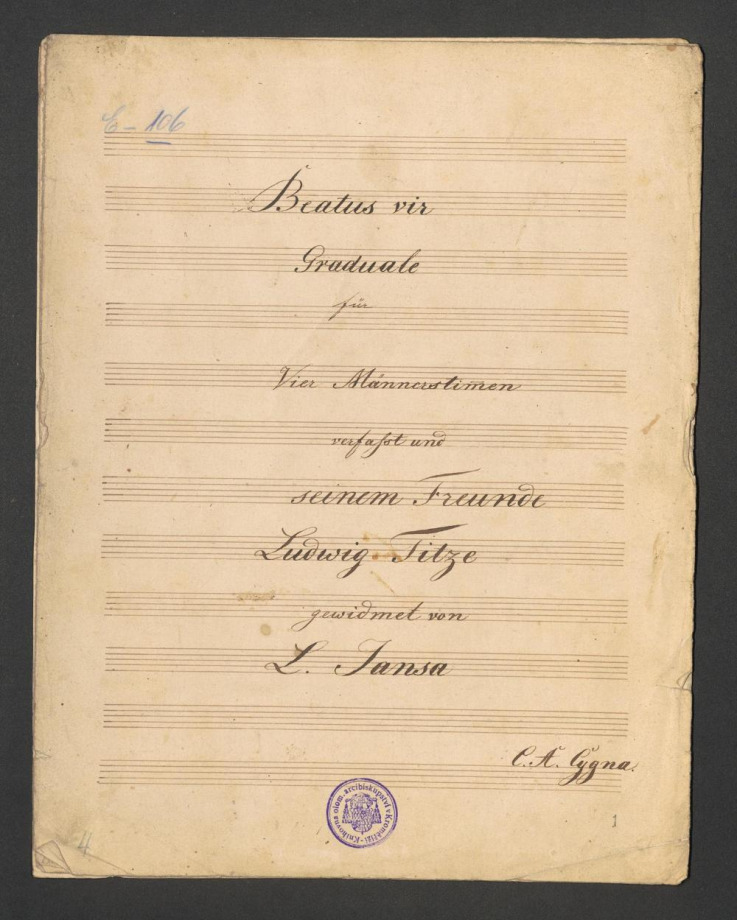 E-106
Beatus vir
Graduale
für
Vier Männerstimen
verfasst und
seinem Freunde
Ludwig Titze
gewidmet von
L. Jansa
C. A. Cygna.
Knihovna olom. arcibiskupství v Kroměříži
1
4